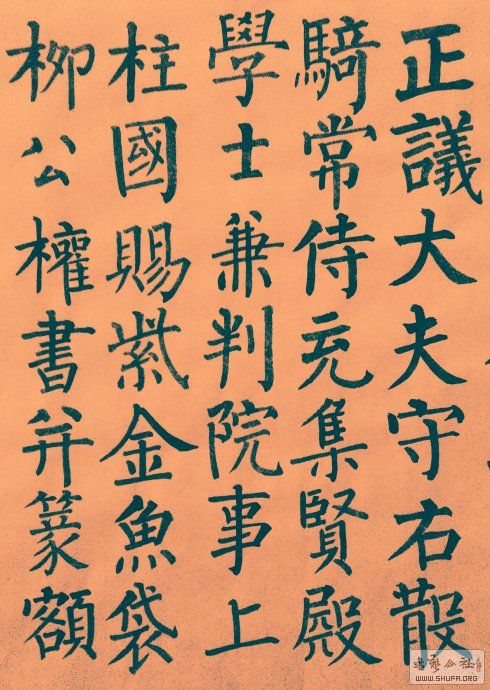 正議大夫守右散
騎常侍充集賢殿
學士兼判院事上
柱國賜紫金魚袋
柳公權書并篆額
書藝公社
WWW.SHUFA.ORG